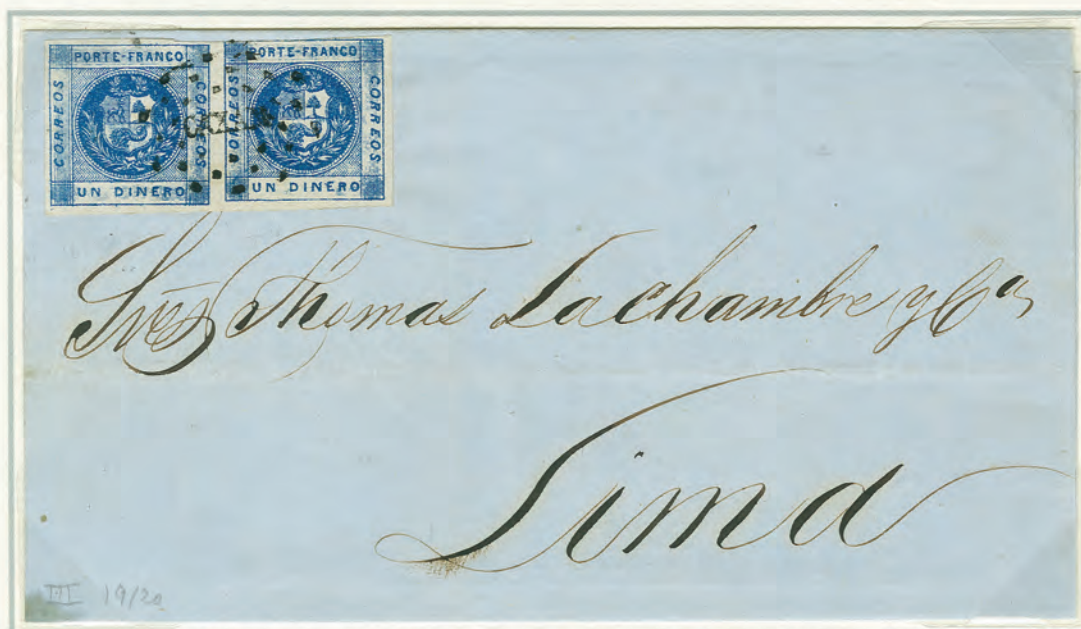 PORTE-FRANCO
CORREOS
CORREOS
UN DINERO
PORTE-FRANCO
CORREOS
CORREOS
UN DINERO
Sres Thomas Lachambre y Ca
Lima
III 19/20